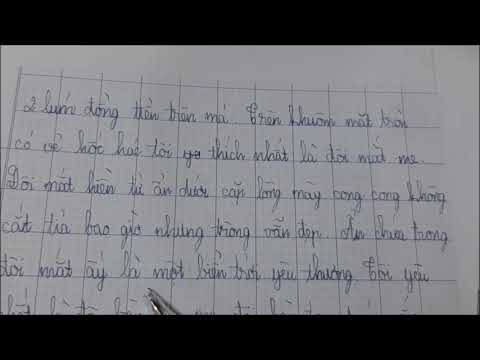 2 lúm đồng tiền trên má. Trên khuôn mặt tròn
có vẻ hốc hác tôi thích nhất là đôi mắt mẹ.
Đôi mắt hiền từ ẩn dưới cặp lông mày cong cong không
cắt tỉa bao giờ nhưng trông vẫn đẹp. Ẩn chưa trong
đôi mắt ấy là một biển trời yêu thương. Tôi yêu